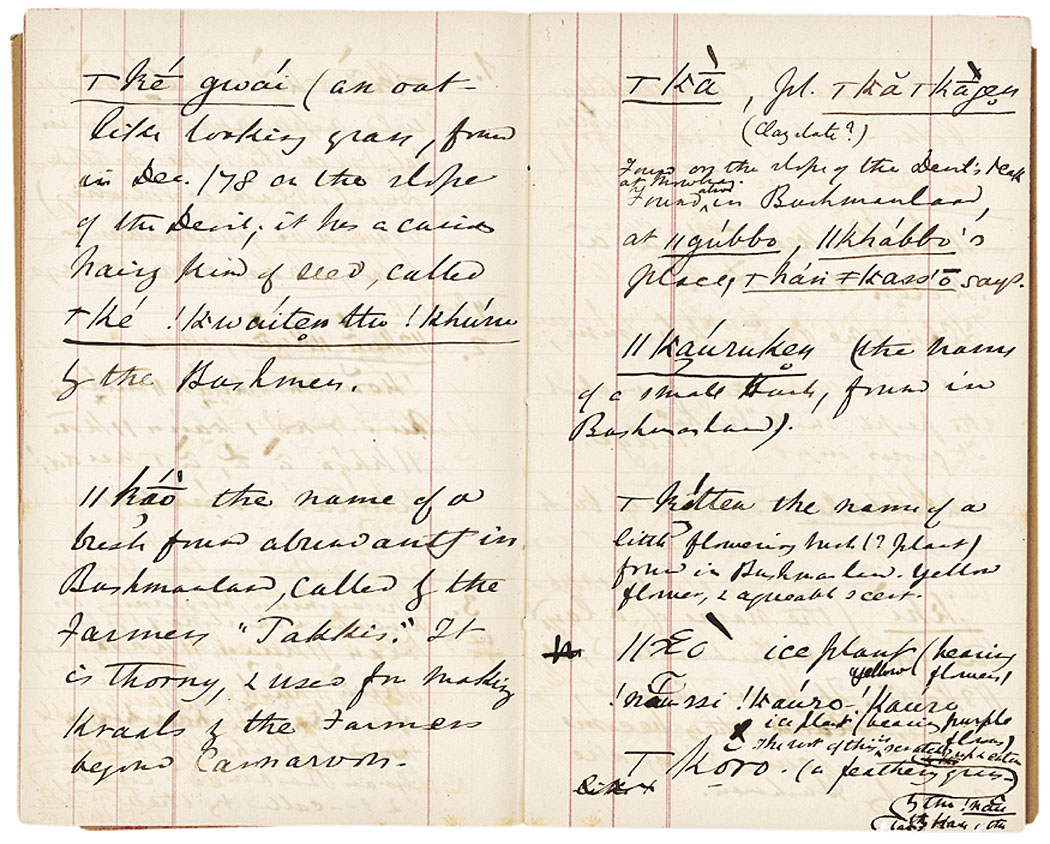 ⊤ ké gwái (an oat-
like looking grass, found
in Dec. /78 on the slope
of the Devil; it has a curious
hairy kind of seed, called
⊤ké !kwáiten ttu !khúru
by the Bushmen.
ǁ káō the name of a
bush found abundantly in
Bushmanland, called by the
Farmers "Takkis." It
is thorny, & used for making
Kraals by the Farmers
beyond Carnarvon.
⊤ kā̀, pl. ⊤kă⊤kā̀gen
(Clay slate?)
Found on the slope of the Devil's Peak
at Mowbray.
Found also in Bushmanland,
at ǁgúbbo, ǁkhábbo's
place, ⊤hán ǂkass'ō says.
ǁkáuruken (the name
of a small bush, found in
Bushmanland).
⊤ kítten the name of a
little flowering bush (? plant)
found in Bushmanland. Yellow
flower, & agreeable scent.
ǁXo ice plant (bearing
yellow flowers)
!naussi !káuro-!káuro
ice plant (bearing purple
flowers)
The root of this is scratched up & eaten
⊤ koro. (a feathery grass)
like
by the !nau